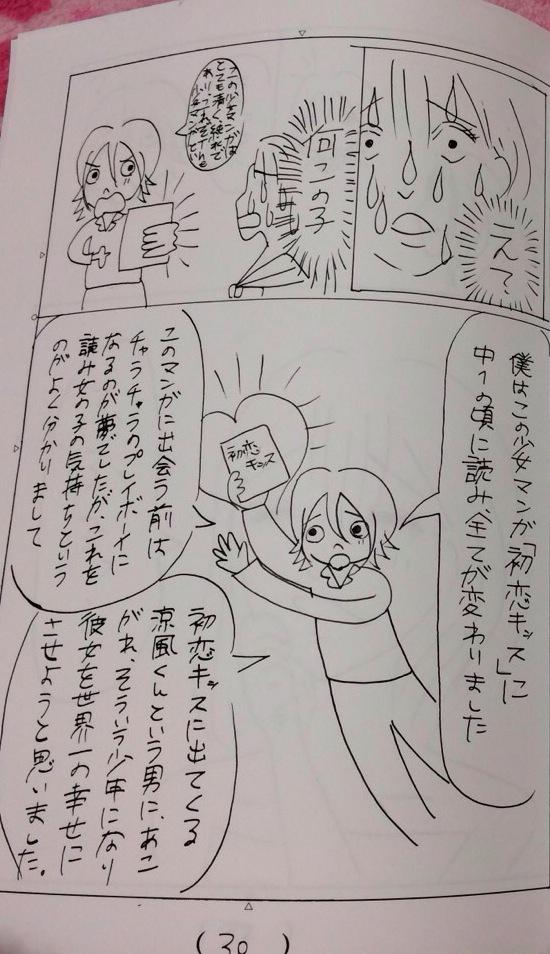 え?
何この子
この少女マンガは
とても清く、純粋で
僕はこの少女マンガ「初恋キッス」に
中1の頃に読み全てが変わりました
初恋
キッス
このマンガに出会う前は
チャラチャラのプレイボーイに
なるのが夢でしたが、これを
読み女の子の気持ちという
のがよく分かりまして
初恋キッスに出てくる
涼風くんという男に、あこ
がれ、そういう少年になり
彼女を世界一の幸せに
させようと思いました。
(30)